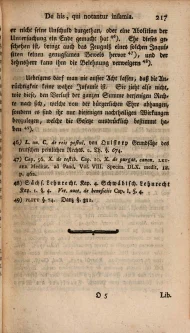 De his, qui notantur infamia. 217
er nicht seine Unschuld dargethan, oder eine Abolition der
Untersuchung ein Ende gemacht hat 46). Ehe dieses ge-
schehen ist, bringt auch das Zeugniß eines solchen Inqui-
siten keinen vollen Beweis hervor 47); und der
Lehensherr kann ihm die Belehnung verweigern 48).
Uebrigens darf man nie ausser Acht lassen, daß die An-
rüchtigkeit keine wahre Infamie ist. Sie zieht also nicht,
wie diese, den Verlust der ganzen Summe derjenigen Rech-
te nach sich, welche von der bürgerlichen Ehre abhangen,
sondern es sind ihr nur diejenigen nachtheiligen Wirkungen
beyzulegen, welche die Gesetze ausdrücklich bestimmt ha-
ben 49).
46) L. un. C. de reis postul. von Quistorp Grundsätze des
teutschen peinlichen Rechts. 2. Th. §. 674.
47) Cap. 56. X. de testib. Cap. 10. X. de purgat. canon.
Medit. ad Pand. Vol. VIII. Specim. DLX. medit.
48) Sächs. Lehnrecht Kap. 4. Schwäbisch. Lehnrecht
Kap. 1. §. 4. Vet. auct. de beneficiis Cap. I. §. 4.
49) §. 14. §. 311.
O 5 Lib.